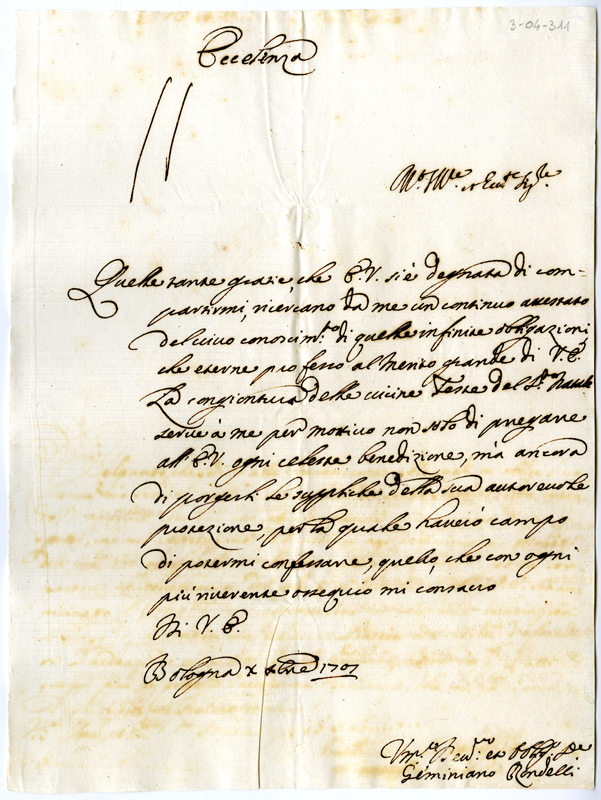 3-04-311
Eccelenza
Quelle tante grazie, che E.V. si è degnata di com-
partirmi, ricercano da me un continuo attestato
del vivo conoscim.to di quelle infinite obligazioni
che eterne professo al merito grande di V.E.
La congiontura delle vicine Feste del S.to Natale
serve à me per mottivo non solo di pregare
all' E.V. ogni celeste benedizione, mà ancora
di porgerli le suppliche della sua autorevole
protezione, per la quale haverò campo
di potermi confessare, quello, che con ogni
più riverente ossequio mi consacro
Di V.E.
Bologna X Xbre 1707
Geminiano Rondelli